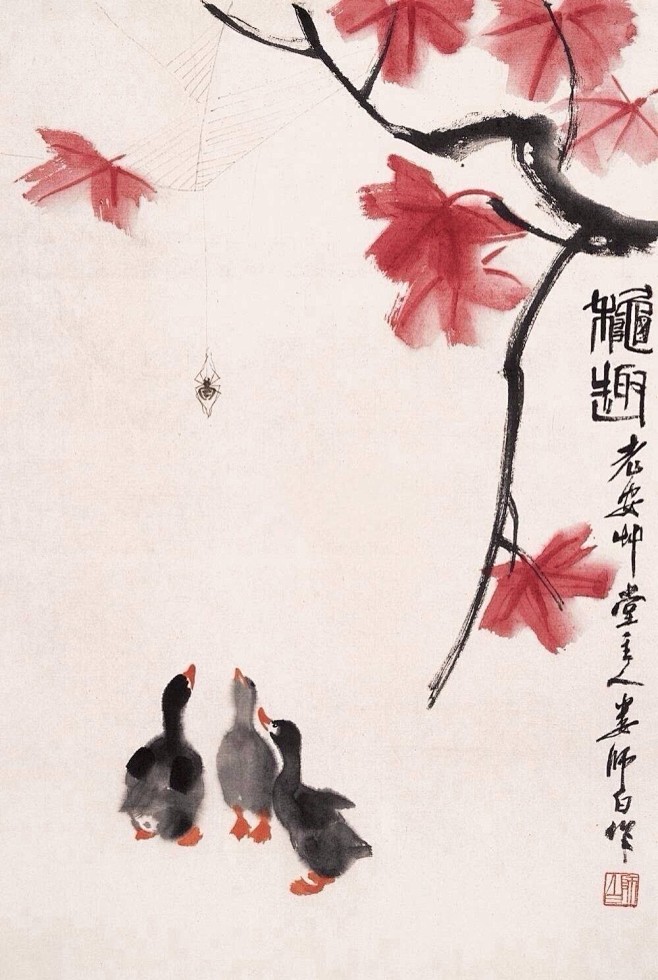 穐趣
老安艸堂主人婁師白作